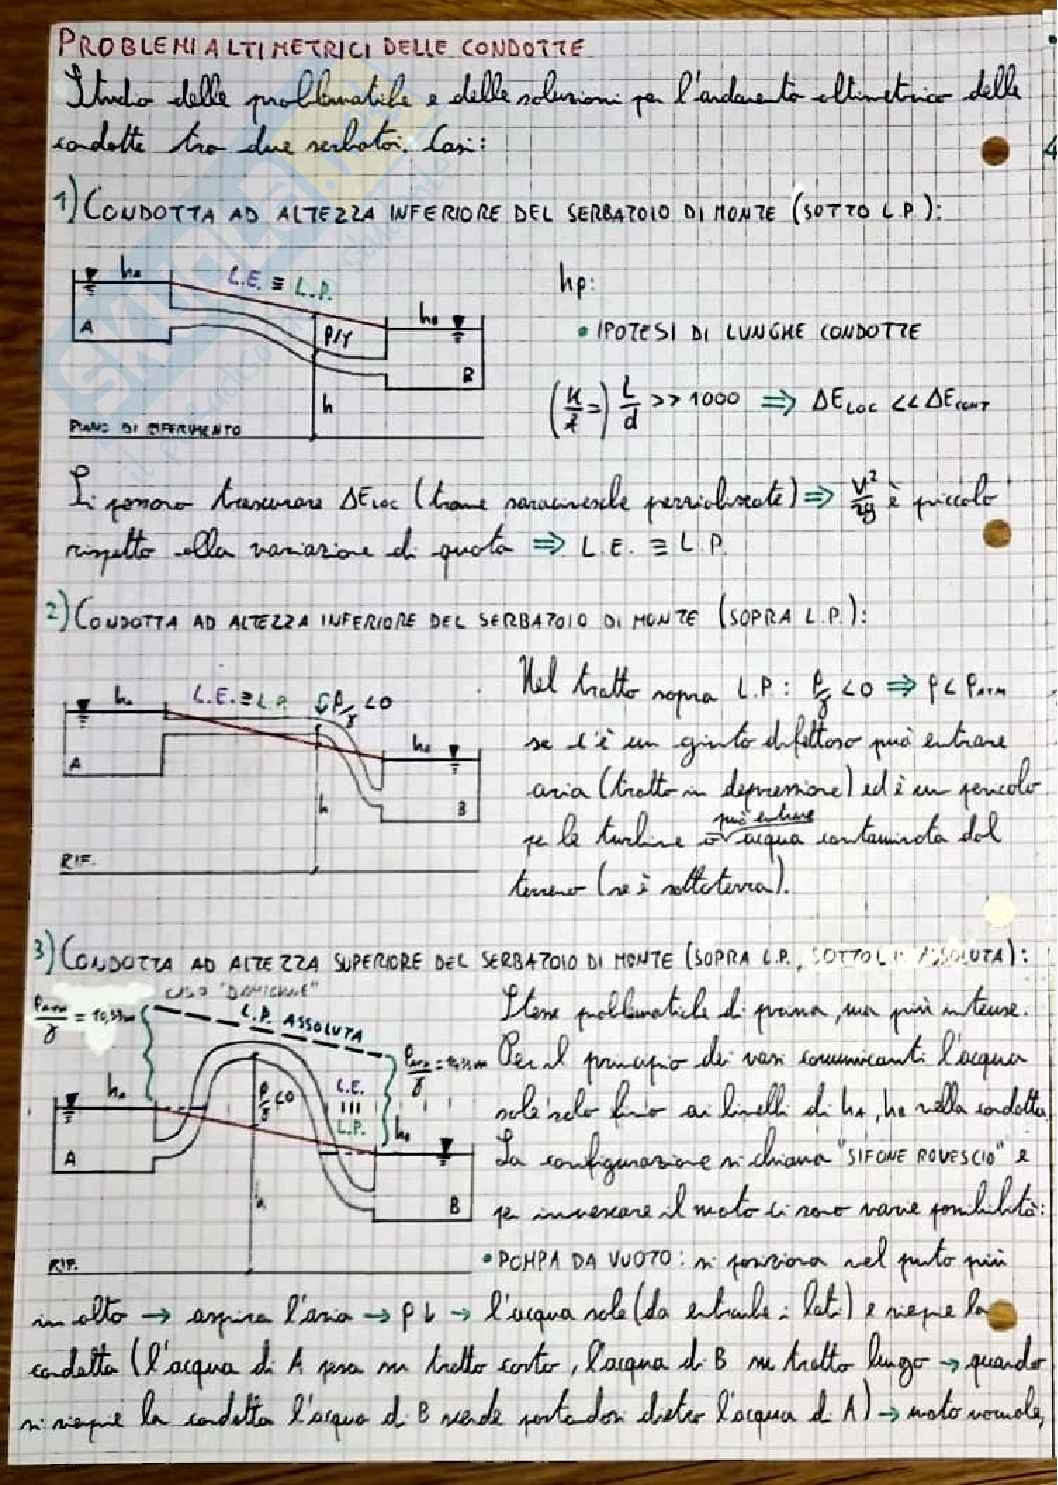 PROBLEMI ALTIMETRICI DELLE CONDOTTE
Studio delle problematiche e delle soluzioni per l'andamento altimetrico delle
condotte tra due serbatoi. Casi:
1) CONDOTTA AD ALTEZZA INFERIORE DEL SERBATOIO DI MONTE (SOTTO L.P.):
hA L.E. ≡ L.P. hB
A P/γ B
h
PIANO DI RIFERIMENTO
hp:
• IPOTESI DI LUNGHE CONDOTTE
L/d >> 1000 ⇒ ΔE LOC << ΔE CONT
Si possono trascurare ΔE LOC (tranne saracinesche parzializzate) ⇒ V²/2g è piccolo
rispetto alla variazione di quota ⇒ L.E. ≡ L.P.
2) CONDOTTA AD ALTEZZA INFERIORE DEL SERBATOIO DI MONTE (SOPRA L.P.):
hA L.E. ≡ L.P. P/γ <0 hB
A B
h
RIF.
Nel tratto sopra L.P.: P/γ <0 ⇒ P < PATM
se c'è un giunto difettoso può entrare
aria (tratto in depressione) ed è un pericolo
per le turbine o può entrare acqua contaminata dal
terreno (se è sottoterra).
3) CONDOTTA AD ALTEZZA SUPERIORE DEL SERBATOIO DI MONTE (SOPRA L.P., SOTTO L.P. ASSOLUTA):
CASO
L.P. ASSOLUTA
PATM/γ = 10,33m
PATM/γ = 10,33m
hA P/γ <0 L.E. ≡ L.P. hB
A B
h
RIF.
Stesse problematiche di prima, ma più intense.
Per il principio dei vasi comunicanti l'acqua
sale solo fino ai livelli di hA, hB nella condotta.
La configurazione si chiama "SIFONE ROVESCIO" e
per innescare il moto ci sono varie possibilità:
• POMPA DA VUOTO: si posiziona nel punto più
in alto → aspira l'aria → P ↓ → l'acqua sale (da entrambi i lati) e riempie la
condotta (l'acqua di A pesa su tratto corto, l'acqua di B su tratto lungo → quando
si riempie la condotta l'acqua di B scende portandosi dietro l'acqua di A) → moto normale,
SKUOLA.NET